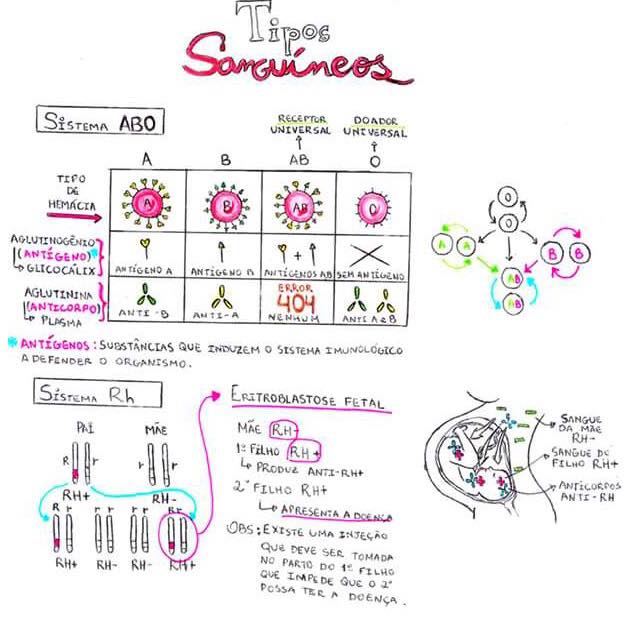 Tipos
Sanguíneos
Sistema ABO
RECEPTOR UNIVERSAL
DOADOR UNIVERSAL
A B AB O
TIPO
DE
HEMÁCIA
A B AB O
AGLUTINOGÊNIO
(ANTÍGENO)*
GLICOCÁLIX
+
ANTÍGENO A ANTÍGENO B ANTÍGENOS AB SEM ANTÍGENO
AGLUTININA
(ANTICORPO)
PLASMA
ERROR
404
ANTI-B ANTI-A NENHUM ANTI A e B
O
O
A A
B B
AB
AB
* ANTÍGENOS: SUBSTÂNCIAS QUE INDUZEM O SISTEMA IMUNOLÓGICO
A DEFENDER O ORGANISMO.
Sistema Rh
PAI MÃE
R r r r
RH+ RH-
R r
Rr
RH+ RH- RH- RH+
ERITROBLASTOSE FETAL
MÃE RH-
1º FILHO RH+
PRODUZ ANTI-RH+
2º FILHO RH+
APRESENTA A DOENÇA
OBS: EXISTE UMA INJEÇÃO
QUE DEVE SER TOMADA
NO PARTO DO 1º FILHO
QUE IMPEDE QUE O 2º
POSSA TER A DOENÇA.
SANGUE
DA MÃE
RH-
SANGUE DO
FILHO RH+
ANTICORPOS
ANTI-RH